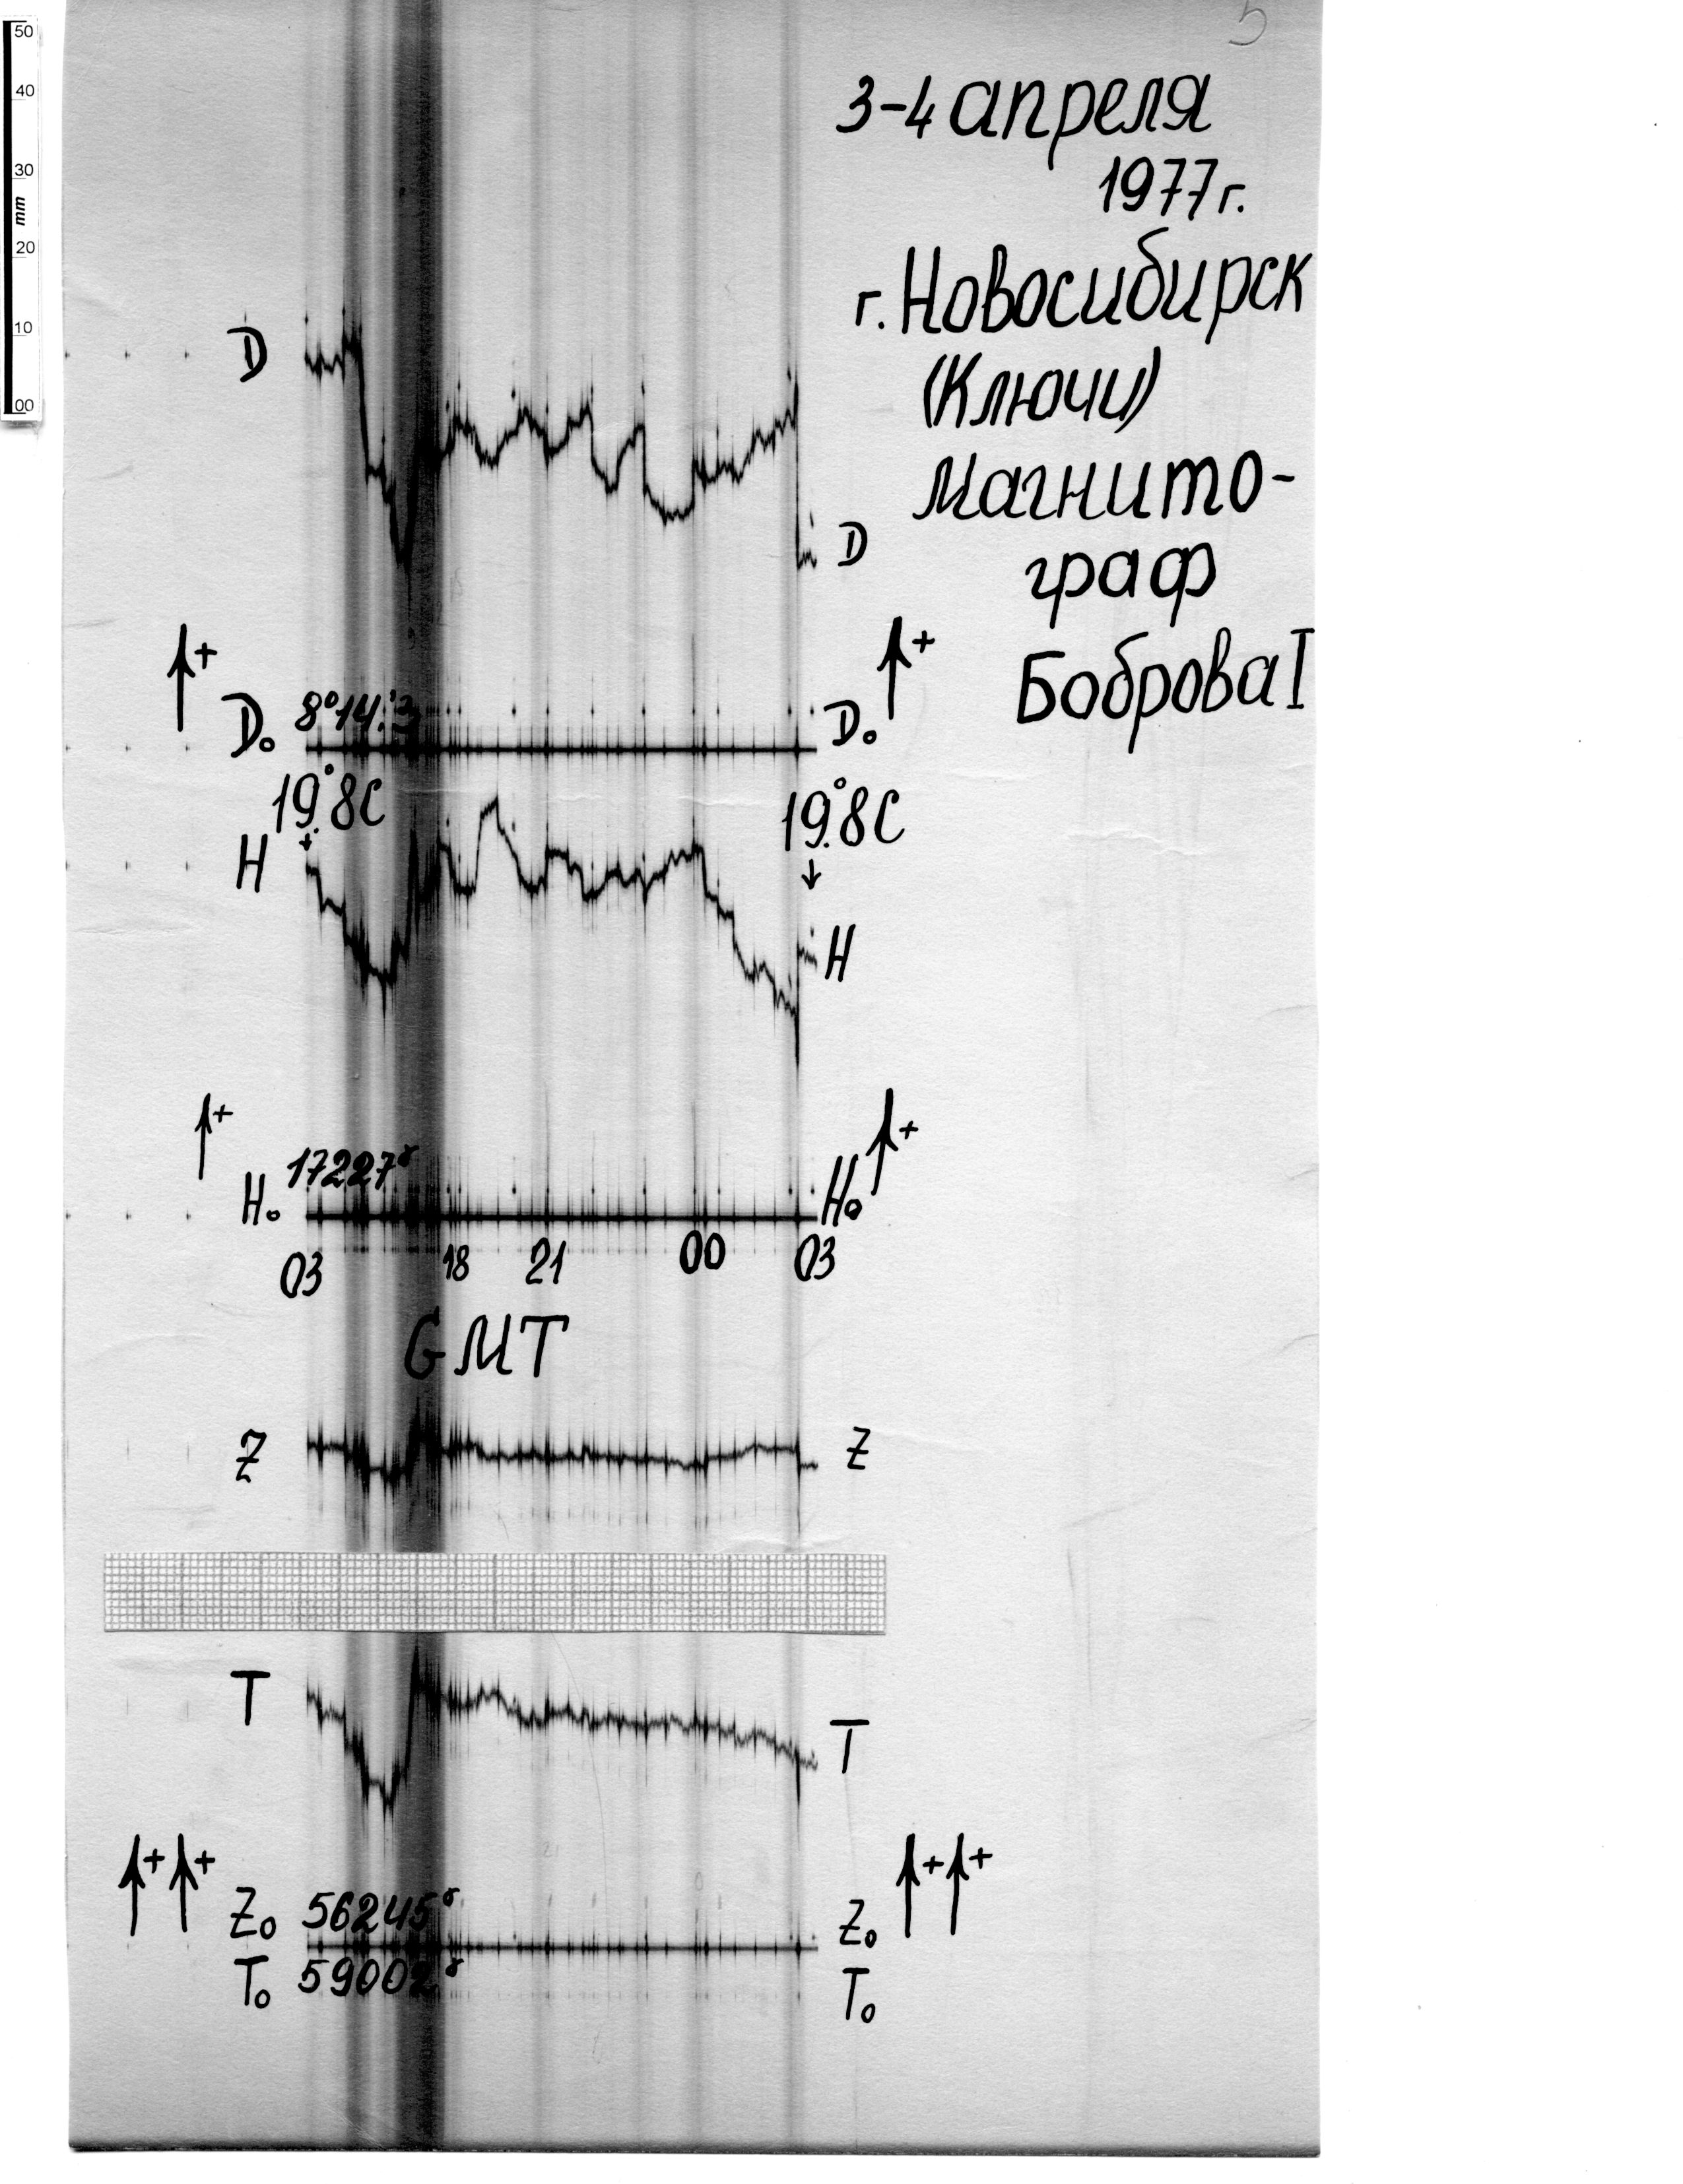 5
50
40
30
mm
20
10
00
3-4 апреля
1977 г.
г. Новосибирск
(Ключи)
Магнито-
граф
Боброва I
D
D
+ +
D₀ 8°14.'3 D₀
19.°8C 19.°8C
H
H
+ +
17227γ
H₀ H₀
03 18 21 00 03
GMT
Z Z
T
T
+ + + +
Z₀ 56245γ Z₀
T₀ 59002γ T₀